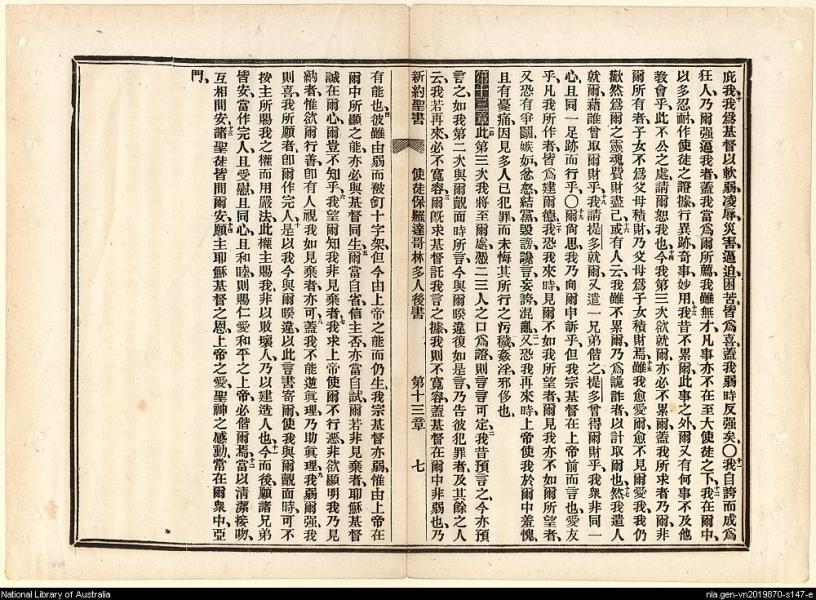 庇我、我爲基督、以軟弱凌辱災害逼迫困苦、皆爲喜、蓋我弱時反强矣、〇我自誇而成爲
狂人、乃爾强逼我者、蓋我當爲爾所薦、我雖無才、凡事亦不在至大使徒之下、我在爾中、
以多忍耐、作使徒之證據、行異跡奇事妙用、我昔不累爾、此事之外、爾又有何事不及他
教會乎、此不公之處、請爾恕我也、今我第三次欲就爾、亦必不累爾、蓋我所求者乃爾、非
爾所有者、子女不爲父母積財、乃父母爲子女積財焉、雖我愈愛爾、愈不見爾愛我、我仍
歡然爲爾之靈魂費財盡己、或有人云、我雖不累爾、乃爲詭詐者、以計取爾也、然我遣人
就爾、藉誰曾取爾財乎、我請提多就爾、又遣一兄弟偕之、提多曾得爾財乎、我衆非同一
心、且同一足跡而行乎、〇爾尙思我乃向爾申訴乎、但我宗基督、在上帝前而言也、愛友
乎、凡我所作者、皆爲建爾德、我恐我來時、見爾不如我所望者、爾見我亦不如爾所望者、
又恐有爭鬬嫉妬忿怒結黨毀謗讒言妄誇混亂、又恐我再來時、上帝使我於爾中羞愧、
且有憂痛、因見多人已犯罪、而未悔其所行之汚穢姦淫邪侈也、
第十三章 此第三次我將至爾處、憑二三人之口爲證、則言言可定、我昔預言之、今亦預
言之、如我第二次與爾覿面時所言、今與爾暌違、復如是言、乃告彼犯罪者、及其餘之人
云、我若再來、必不寬容、爾旣求基督託我言之據、我則不寬容、蓋基督在爾中非弱也、乃
新約聖書 使徒保羅達哥林多人後書 第十三章 七
有能也、彼雖由弱而被釘十字架、但今由上帝之能而仍生、我宗基督亦弱、惟由上帝在
爾中所顯之能、亦必與基督同生、爾當自省信主否、亦當自試、爾若非見棄者、耶穌基督
誠在爾心、爾豈不知乎、我望爾知我非見棄者、我求上帝使爾不行惡、非欲顯明我乃見
納者、惟欲爾行善、卽有人視我如見棄者、亦可、蓋我不能逆眞理、乃助眞理、我弱爾强、我
則喜、我所願者、卽爾作完人、是以我今與爾暌違、以此言書寄爾、使我與爾覿面時、可不
按主所賜我之權而用嚴法、此權主賜我、非以敗壞人、乃以建造人也、今而後願諸兄弟
皆安、當作完人、且受慰、且同心、且和睦、則賜仁愛和平之上帝、必偕爾焉、當以清潔接吻、
互相問安、諸聖徒皆問爾安、願主耶穌基督之恩、上帝之愛、聖神之感動、常在爾衆中、亞
門、
National Library of Australia
nla.gen-vn2019870-s147-e